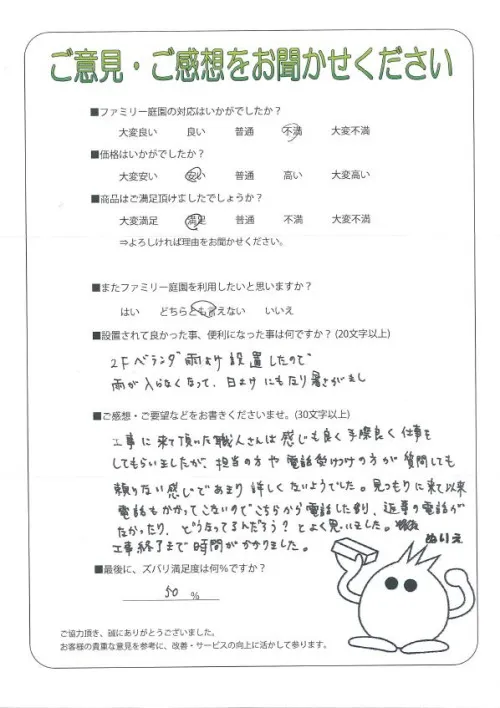 ご意見・ご感想をお聞かせください
■ファミリー庭園の対応はいかがでしたか？
大変良い 良い 普通 不満 大変不満
■価格はいかがでしたか？
大変安い 安い 普通 高い 大変高い
■商品はご満足頂けましたでしょうか？
大変満足 満足 普通 不満 大変不満
⇒よろしければ理由をお聞かせください。
■またファミリー庭園を利用したいと思いますか？
はい どちらとも言えない いいえ
■設置されて良かった事、便利になった事は何ですか？（20文字以上）
2Fベランダ雨よけ設置したので
雨が入らなくなって、日よけにもなり暑さがまし
■ご感想・ご要望などをお書きくださいませ。（30文字以上）
工事に来て頂いた職人さんは感じも良く手際良く仕事を
してもらいましたが、担当の方や電話受けつけの方が質問しても
頼りない感じであまり詳しくないようでした。見つもりに来て以来
電話もかかってこないのでこちらから電話した割、返事の電話が
なかったり、どうなってるんだろう？とよく思いました。
工事終了まで時間がかかりました。
ぬりえ
■最後に、ズバリ満足度は何％ですか？
50 ％
ご協力頂き、誠にありがとうございました。
お客様の貴重な意見を参考に、改善・サービスの向上に活かして参ります。